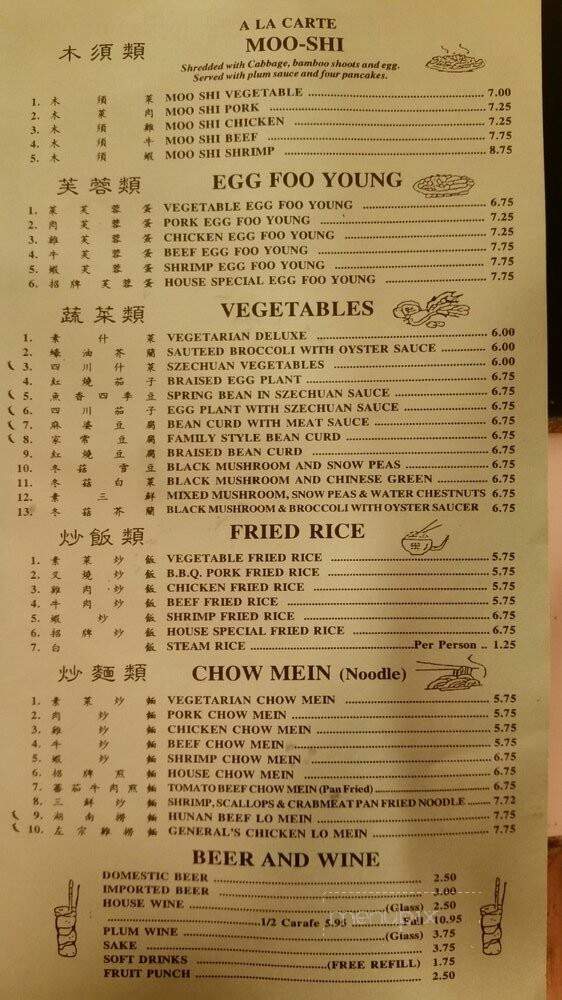 A LA CARTE
木須類 MOO-SHI
Shredded with Cabbage, bamboo shoots and egg.
Served with plum sauce and four pancakes.
1. 木須菜 MOO SHI VEGETABLE 7.00
2. 木菜肉 MOO SHI PORK 7.25
3. 木須雞 MOO SHI CHICKEN 7.25
4. 木須牛 MOO SHI BEEF 7.75
5. 木須蝦 MOO SHI SHRIMP 8.75
芙蓉類 EGG FOO YOUNG
1. 菜芙蓉蛋 VEGETABLE EGG FOO YOUNG 6.75
2. 肉芙蓉蛋 PORK EGG FOO YOUNG 7.25
3. 雞芙蓉蛋 CHICKEN EGG FOO YOUNG 7.25
4. 牛芙蓉蛋 BEEF EGG FOO YOUNG 7.75
5. 蝦芙蓉蛋 SHRIMP EGG FOO YOUNG 7.75
6. 招牌芙蓉蛋 HOUSE SPECIAL EGG FOO YOUNG 7.75
蔬菜類 VEGETABLES
1. 素什菜 VEGETARIAN DELUXE 6.00
2. 蠔油芥蘭 SAUTEED BROCCOLI WITH OYSTER SAUCE 6.00
3. 四川什菜 SZECHUAN VEGETABLES 6.00
4. 紅燒茄子 BRAISED EGG PLANT 6.75
5. 魚香四季豆 SPRING BEAN IN SZECHUAN SAUCE 6.75
6. 四川茄子 EGG PLANT WITH SZECHUAN SAUCE 6.75
7. 麻婆豆腐 BEAN CURD WITH MEAT SAUCE 6.75
8. 家常豆腐 FAMILY STYLE BEAN CURD 6.75
9. 紅燒豆腐 BRAISED BEAN CURD 6.75
10. 冬菇雪豆 BLACK MUSHROOM AND SNOW PEAS 6.75
11. 冬菇白菜 BLACK MUSHROOM AND CHINESE GREEN 6.75
12. 素三鮮 MIXED MUSHROOM, SNOW PEAS & WATER CHESTNUTS 6.75
13. 冬菇芥蘭 BLACK MUSHROOM & BROCCOLI WITH OYSTER SAUCER 6.75
炒飯類 FRIED RICE
1. 素菜炒飯 VEGETABLE FRIED RICE 5.75
2. 叉燒炒飯 B.B.Q. PORK FRIED RICE 5.75
3. 雞肉炒飯 CHICKEN FRIED RICE 5.75
4. 牛肉炒飯 BEEF FRIED RICE 5.75
5. 蝦炒飯 SHRIMP FRIED RICE 6.75
6. 招牌炒飯 HOUSE SPECIAL FRIED RICE 6.75
7. 白飯 STEAM RICE Per Person .. 1.25
炒麵類 CHOW MEIN (Noodle)
1. 素菜炒麵 VEGETARIAN CHOW MEIN 5.75
2. 肉炒麵 PORK CHOW MEIN 5.75
3. 雞炒麵 CHICKEN CHOW MEIN 5.75
4. 牛炒麵 BEEF CHOW MEIN 5.75
5. 蝦炒麵 SHRIMP CHOW MEIN 6.75
6. 招牌煎麵 HOUSE CHOW MEIN 6.75
7. 蕃茄牛肉煎麵 TOMATO BEEF CHOW MEIN (Pan Fried) 6.75
8. 三鮮炒麵 SHRIMP, SCALLOPS & CRABMEAT PAN FRIED NOODLE 7.72
9. 湖南撈麵 HUNAN BEEF LO MEIN 7.75
10. 左宗雞撈麵 GENERAL'S CHICKEN LO MEIN 7.75
BEER AND WINE
DOMESTIC BEER 2.50
IMPORTED BEER 3.00
HOUSE WINE (Glass) 2.50
1/2 Carafe 5.95 Full 10.95
PLUM WINE (Glass) 3.75
SAKE 3.75
SOFT DRINKS (FREE REFILL) 1.75
FRUIT PUNCH 2.50
menupix